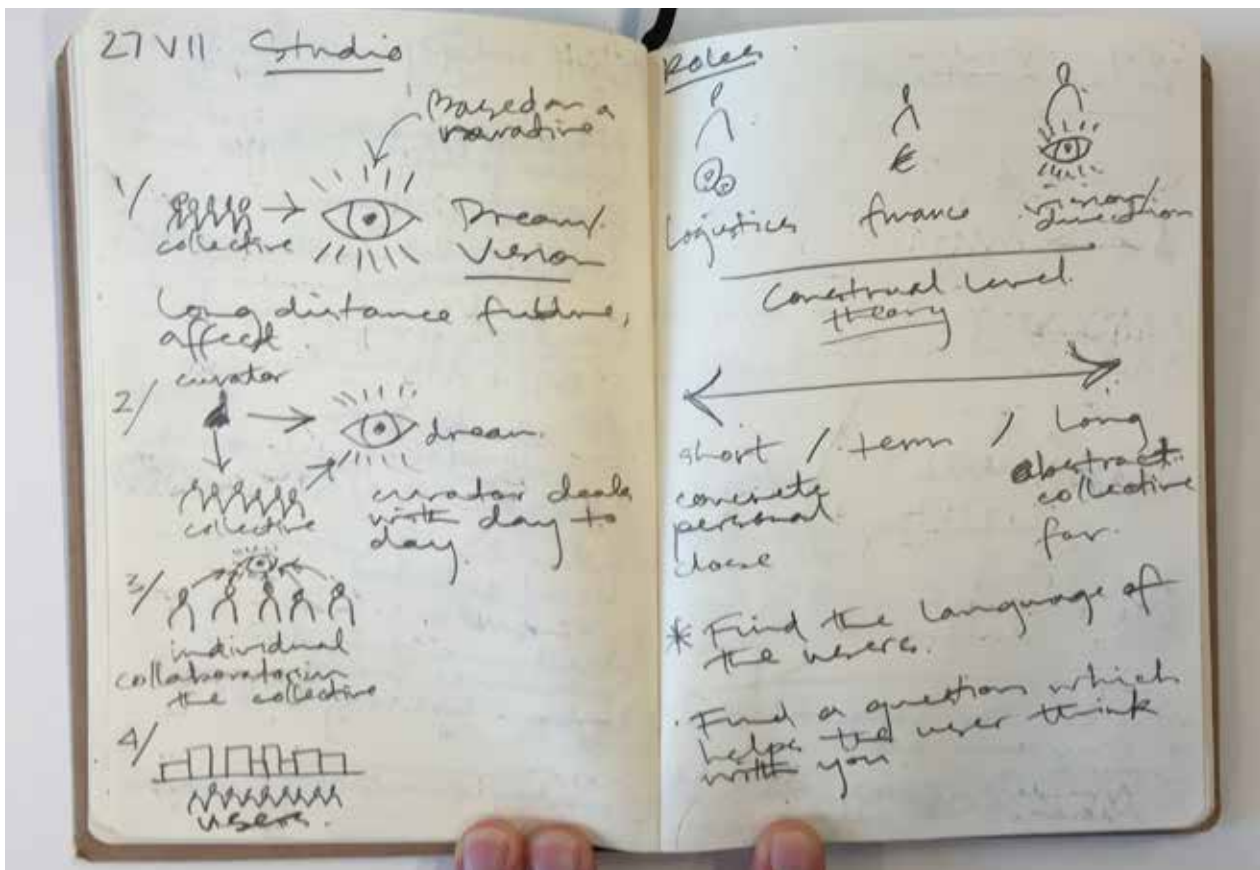 27 VII Studio
Based on a
narrative
1/
collective
Dream/
Vision
Long distance future,
affect.
curator
2/
dream.
collective
curator deals
with day to
day.
3/
individual
collaborator in
the collective
4/
users.
Roles
Logistics
€
finance
vision/
direction
Construal Level
theory
short / term / long
concrete
personal
close
abstract
collective
far.
* Find the language of
the users.
· Find a question which
helps the user think
with you